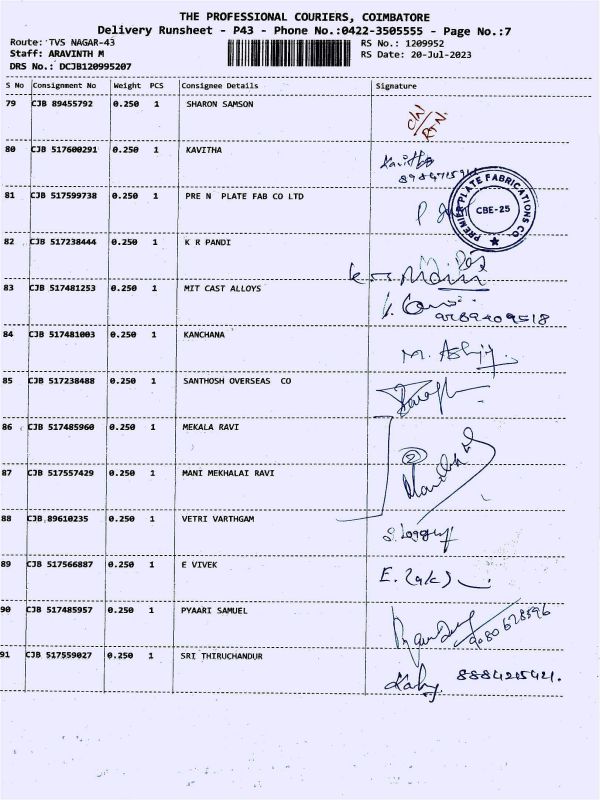 THE PROFESSIONAL COURIERS, COIMBATORE
Delivery Runsheet - P43 - Phone No.:0422-3505555 - Page No.:7
Route: TVS NAGAR-43 RS No.: 1209952
Staff: ARAVINTH M RS Date: 20-Jul-2023
DRS No.: DCJB120995207
S No Consignment No Weight PCS Consignee Details Signature
79 CJB 89455792 0.250 1 SHARON SAMSON
80 CJB 517600291 0.250 1 KAVITHA Kavitha
81 CJB 517599738 0.250 1 PRE N PLATE FAB CO LTD
PREMIER PLATE FABRICATIONS CO
CBE-25
82 CJB 517238444 0.250 1 K R PANDI
83 CJB 517481253 0.250 1 MIT CAST ALLOYS
84 CJB 517481003 0.250 1 KANCHANA
85 CJB 517238488 0.250 1 SANTHOSH OVERSEAS CO
86 CJB 517485960 0.250 1 MEKALA RAVI
87 CJB 517557429 0.250 1 MANI MEKHALAI RAVI
88 CJB 89610235 0.250 1 VETRI VARTHGAM
89 CJB 517566887 0.250 1 E VIVEK
90 CJB 517485957 0.250 1 PYAARI SAMUEL 9080628596
91 CJB 517559027 0.250 1 SRI THIRUCHANDUR